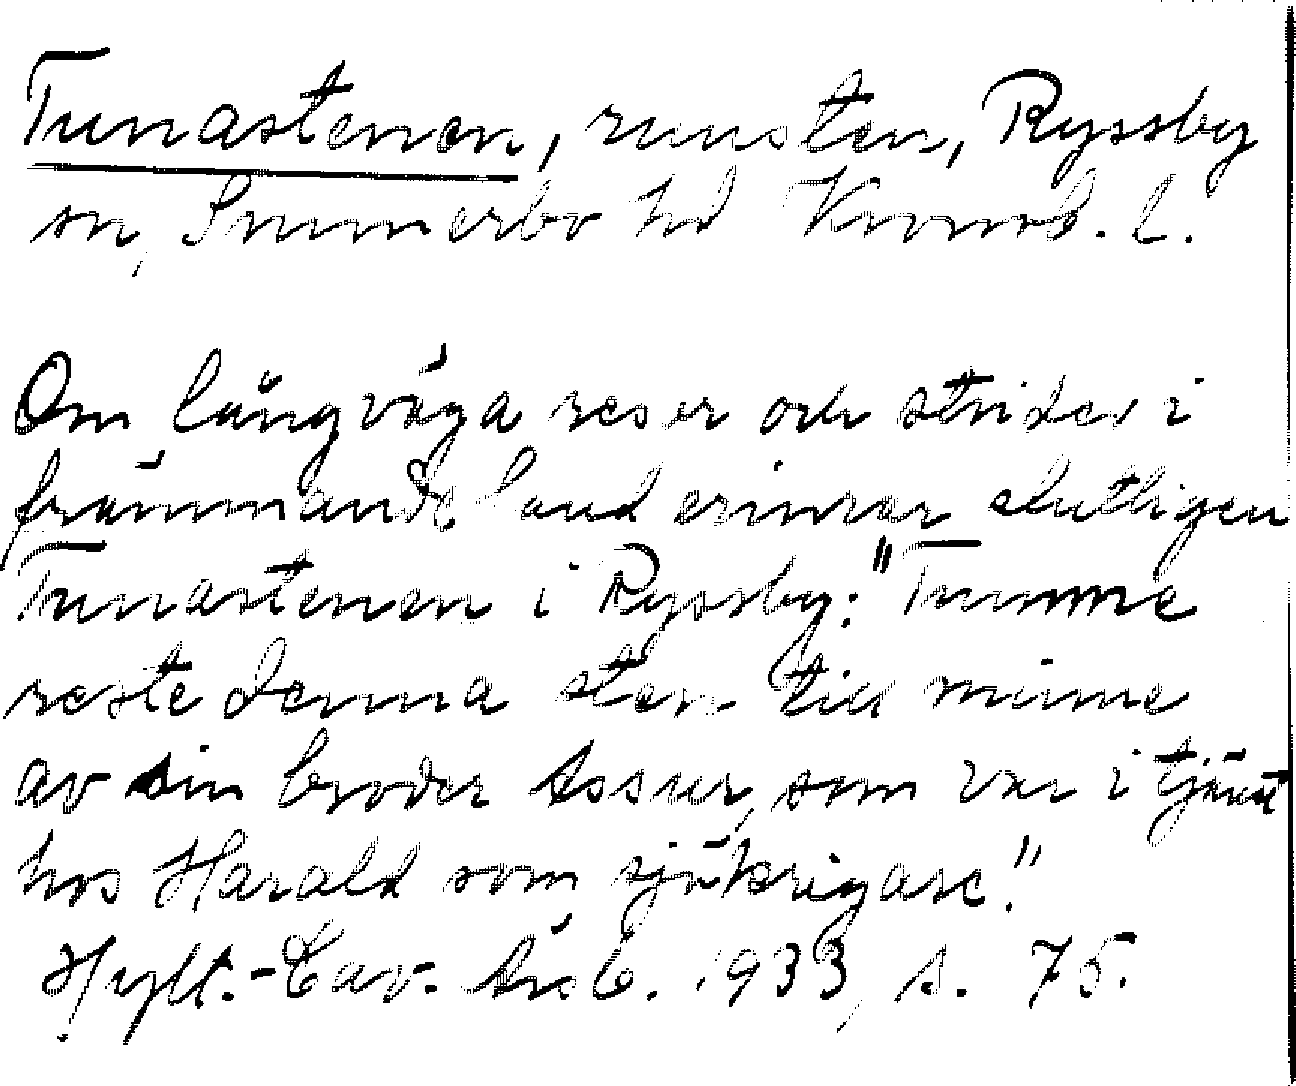 Tunastenen, runsten, Ryssby
sn, Sunnerbo hd Kronob. l.
Om långväga reser och strider i
främmande land erinrar slutligen
Tunastenen i Ryssby: "Tumme
reste denna sten till minne
av sin broder Assur, som var i tjänst
hos Harald som sjökrigare."
Hylt.-Cav. Årsb. 1933, s. 75.